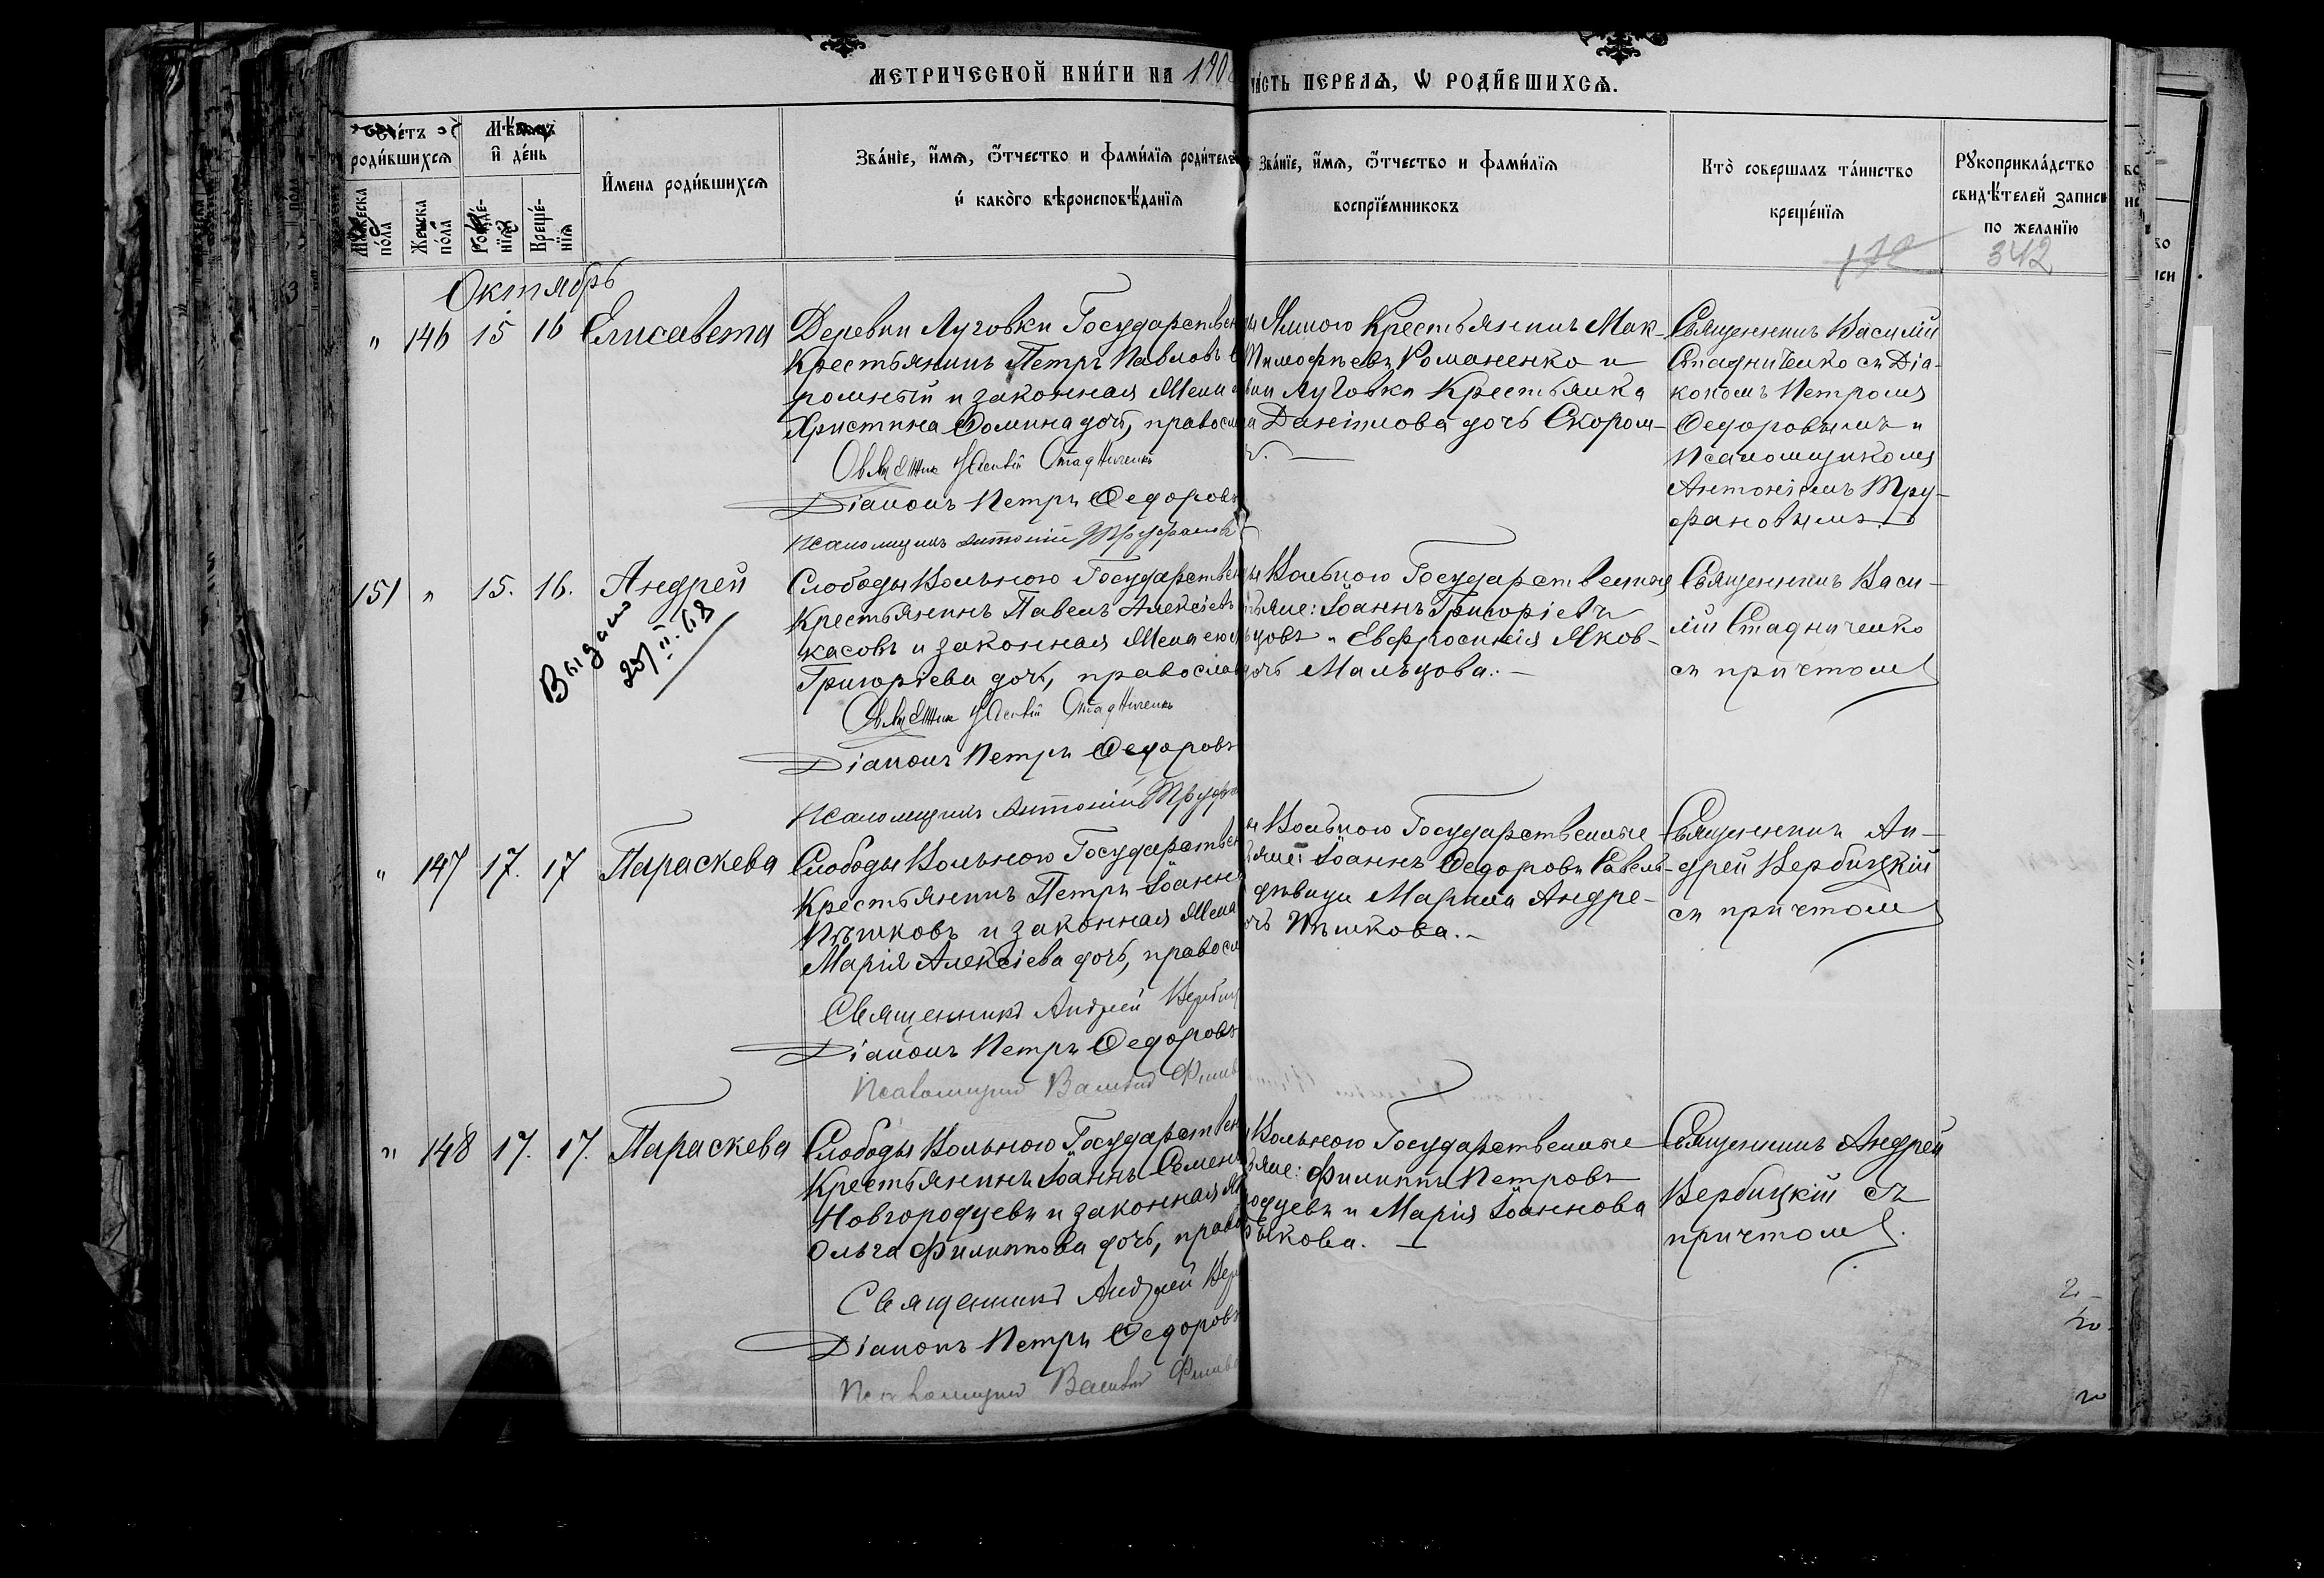 МЕТРИЧЕСКОЙ КНИ́ГИ НА 190
ЧА́СТЬ ПЕРВАѦ, Ѡ РОДИ́ВШИХСѦ.
Сче́тъ роди́вшихсѧ
Мѣ́сяцъ и҆ де́нь
Мꙋ́жеска по́ла
Же́нска по́ла
Рожде́-нїѧ
Креще́-нїѧ
И҆мена роди́вшихсѧ
Зва́нїе, и҆́мѧ, ѻ҆́тчество и фами́лїѧ родителе
и҆ како́го вѣроисповѣ́данїѧ
Зва́нїе, и҆́мѧ, ѻ҆́тчество и фами́лїѧ
воспрїе́мниковъ
Кто̀ совершалъ та́инство
креще́нїѧ
Рꙋкоприкла́дство
свидѣ́телей записи
по жела́нїю
342
Октябрь
" 146 15 16 Елисавета
Деревни Луговки Государствен
Крестьянинъ Петръ Павловъ
ромный и законная жена
Христина Ѳомина дочь, правосл
Священник Василій Стадниченко
Діаконъ Петръ Ѳедоровъ
Псаломщикъ Антоній Труфановъ
Крестьянинъ Мак-
Тимофѣевъ Романенко и
Луговки Крестьянка
Даніилова дочь Скором-
Священникъ Василій
Стадниченко съ Діа-
кономъ Петромъ
Ѳедоровымъ и
Псаломщикомъ
Антоніемъ Тру-
фановымъ.
151 " 15. 16. Андрей
Выдано
25/II.68
Слободы Вольного Государствен
Крестьянинъ Павелъ Алексіевъ
касовъ и законная жена его
Григоріева дочь, православ
Священник Василій Стадниченко
Діаконъ Петръ Ѳедоровъ
Псаломщикъ Антоній Труфа
Вольного Государственные
яне: Іоаннъ Григоріевъ
цовъ и Евфросинія Яков-
дочь Мальцова.
Священникъ Васи-
лій Стадниченко
съ причтомъ
" 147 17. 17 Параскева
Слободы Вольного Государствен
Крестьянинъ Петръ Іоанно
Пѣшковъ и законная жена
Марія Алексіева дочь, правосл
Священникъ Андрей Вербиц
Діаконъ Петръ Ѳедоровъ
Псаломщикъ
Вольного Государственные
яне: Іоаннъ Ѳедоровъ Савель-
дѣвица Марина Андре-
Пѣшкова.
Священникъ Ан-
дрей Вербицкій
съ причтомъ
" 148 17. 17. Параскева
Слободы Вольного Государствен
Крестьянинъ Іоаннъ Семено
Новгородцевъ и законная
Ольга Филиппова дочь, право
Священникъ Андрей Вер
Діаконъ Петръ Ѳедоровъ
Псаломщикъ
Вольного Государственные
яне: Филиппъ Петровъ
одцевъ и Марія Іоаннова
кова.
Священникъ Андрей
Вербицкій съ
причтомъ.